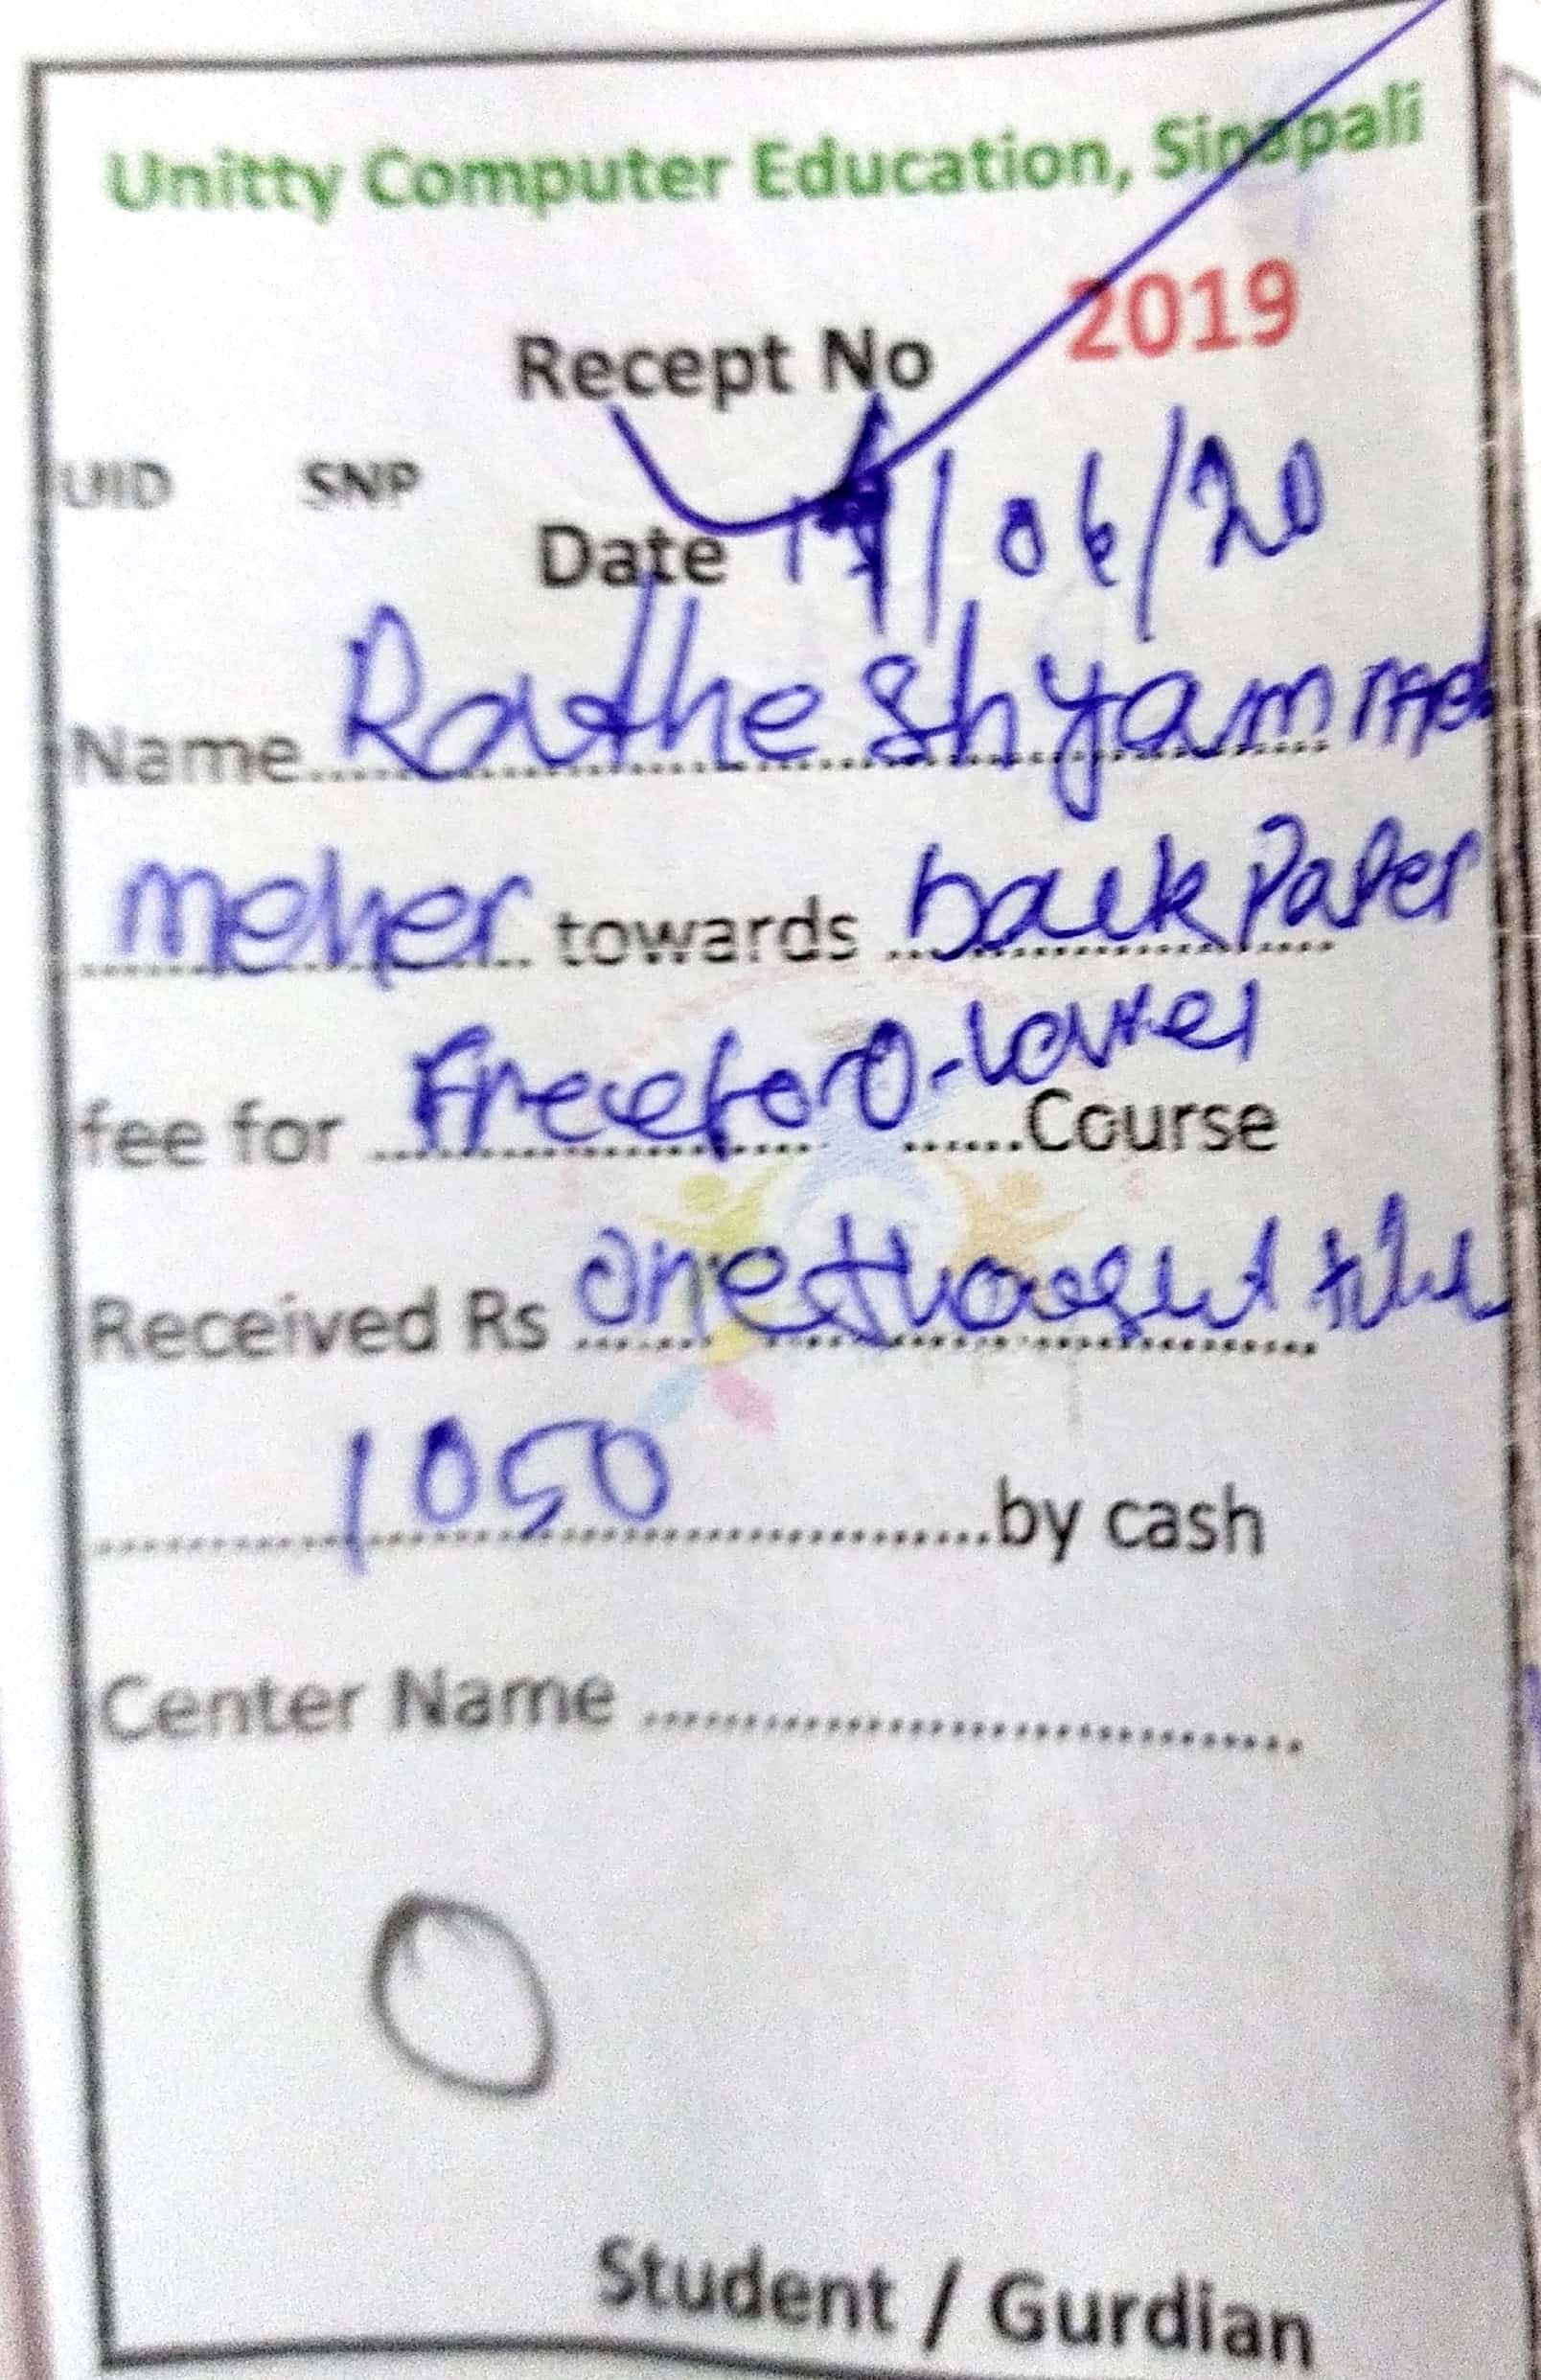 Unitty Computer Education, Sinapali
Recept No 2019
UID SNP
Date /06/20
Name Ratheshyam
meher towards back Paper
fee for Freefor O-Lavel Course
Received Rs one
1050 by cash
Center Name
Student / Gurdian